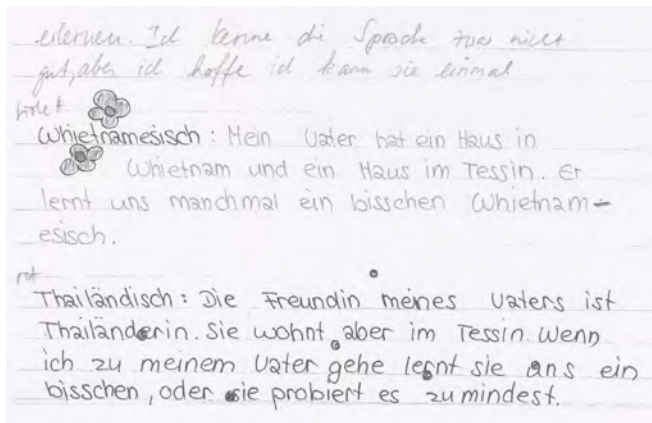 erlernen. Ich kenne die Sprache zwar nicht
gut, aber ich hoffe ich kann sie einmal
violett
Whietnamesisch: Mein Vater hat ein Haus in
Whietnam und ein Haus im Tessin. Er
lernt uns manchmal ein bisschen Whietnam-
esisch.
rot
Thailändisch: Die Freundin meines Vaters ist
Thailänderin. Sie wohnt aber im Tessin. Wenn
ich zu meinem Vater gehe lernt sie uns ein
bisschen, oder sie probiert es zumindest.